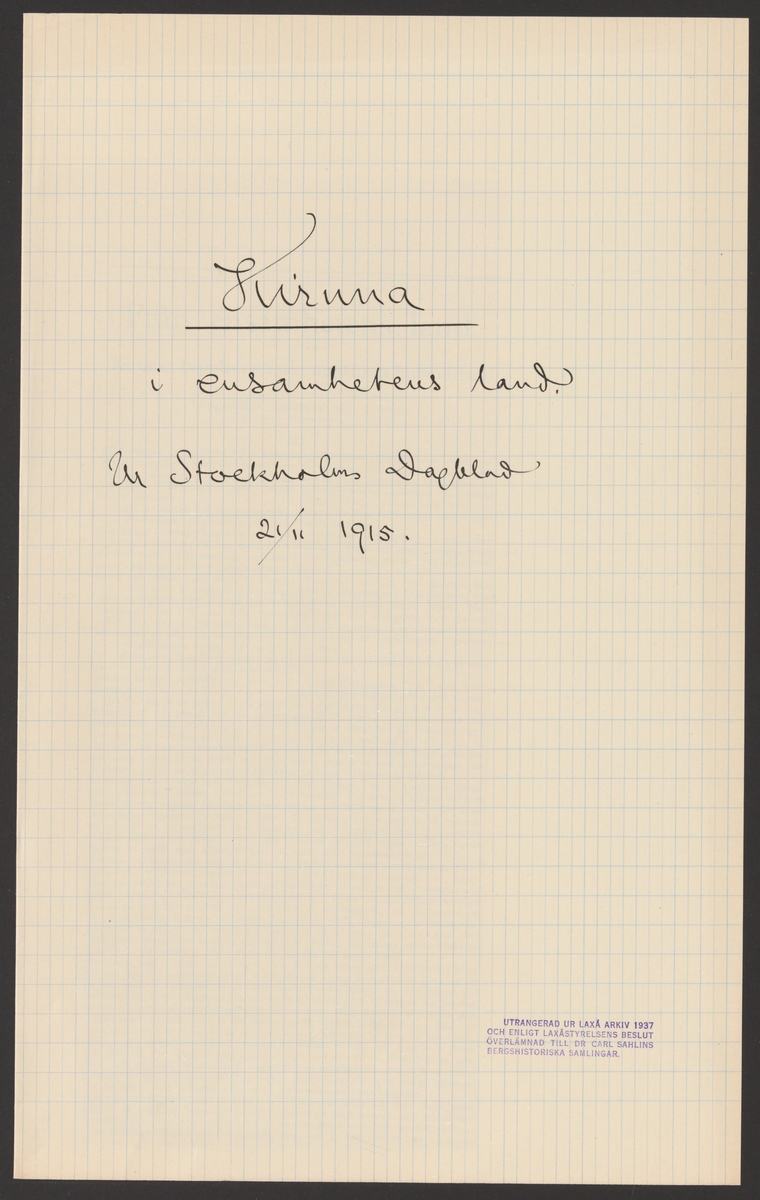 Kiruna
i ensamhetens land.
Ur Stockholms Dagblad
21/11 1915.
UTRANGERAD UR LAXÅ ARKIV 1937
OCH ENLIGT LAXÅSTYRELSENS BESLUT
ÖVERLÄMNAD TILL DR CARL SAHLINS
BERGSHISTORISKA SAMLINGAR.